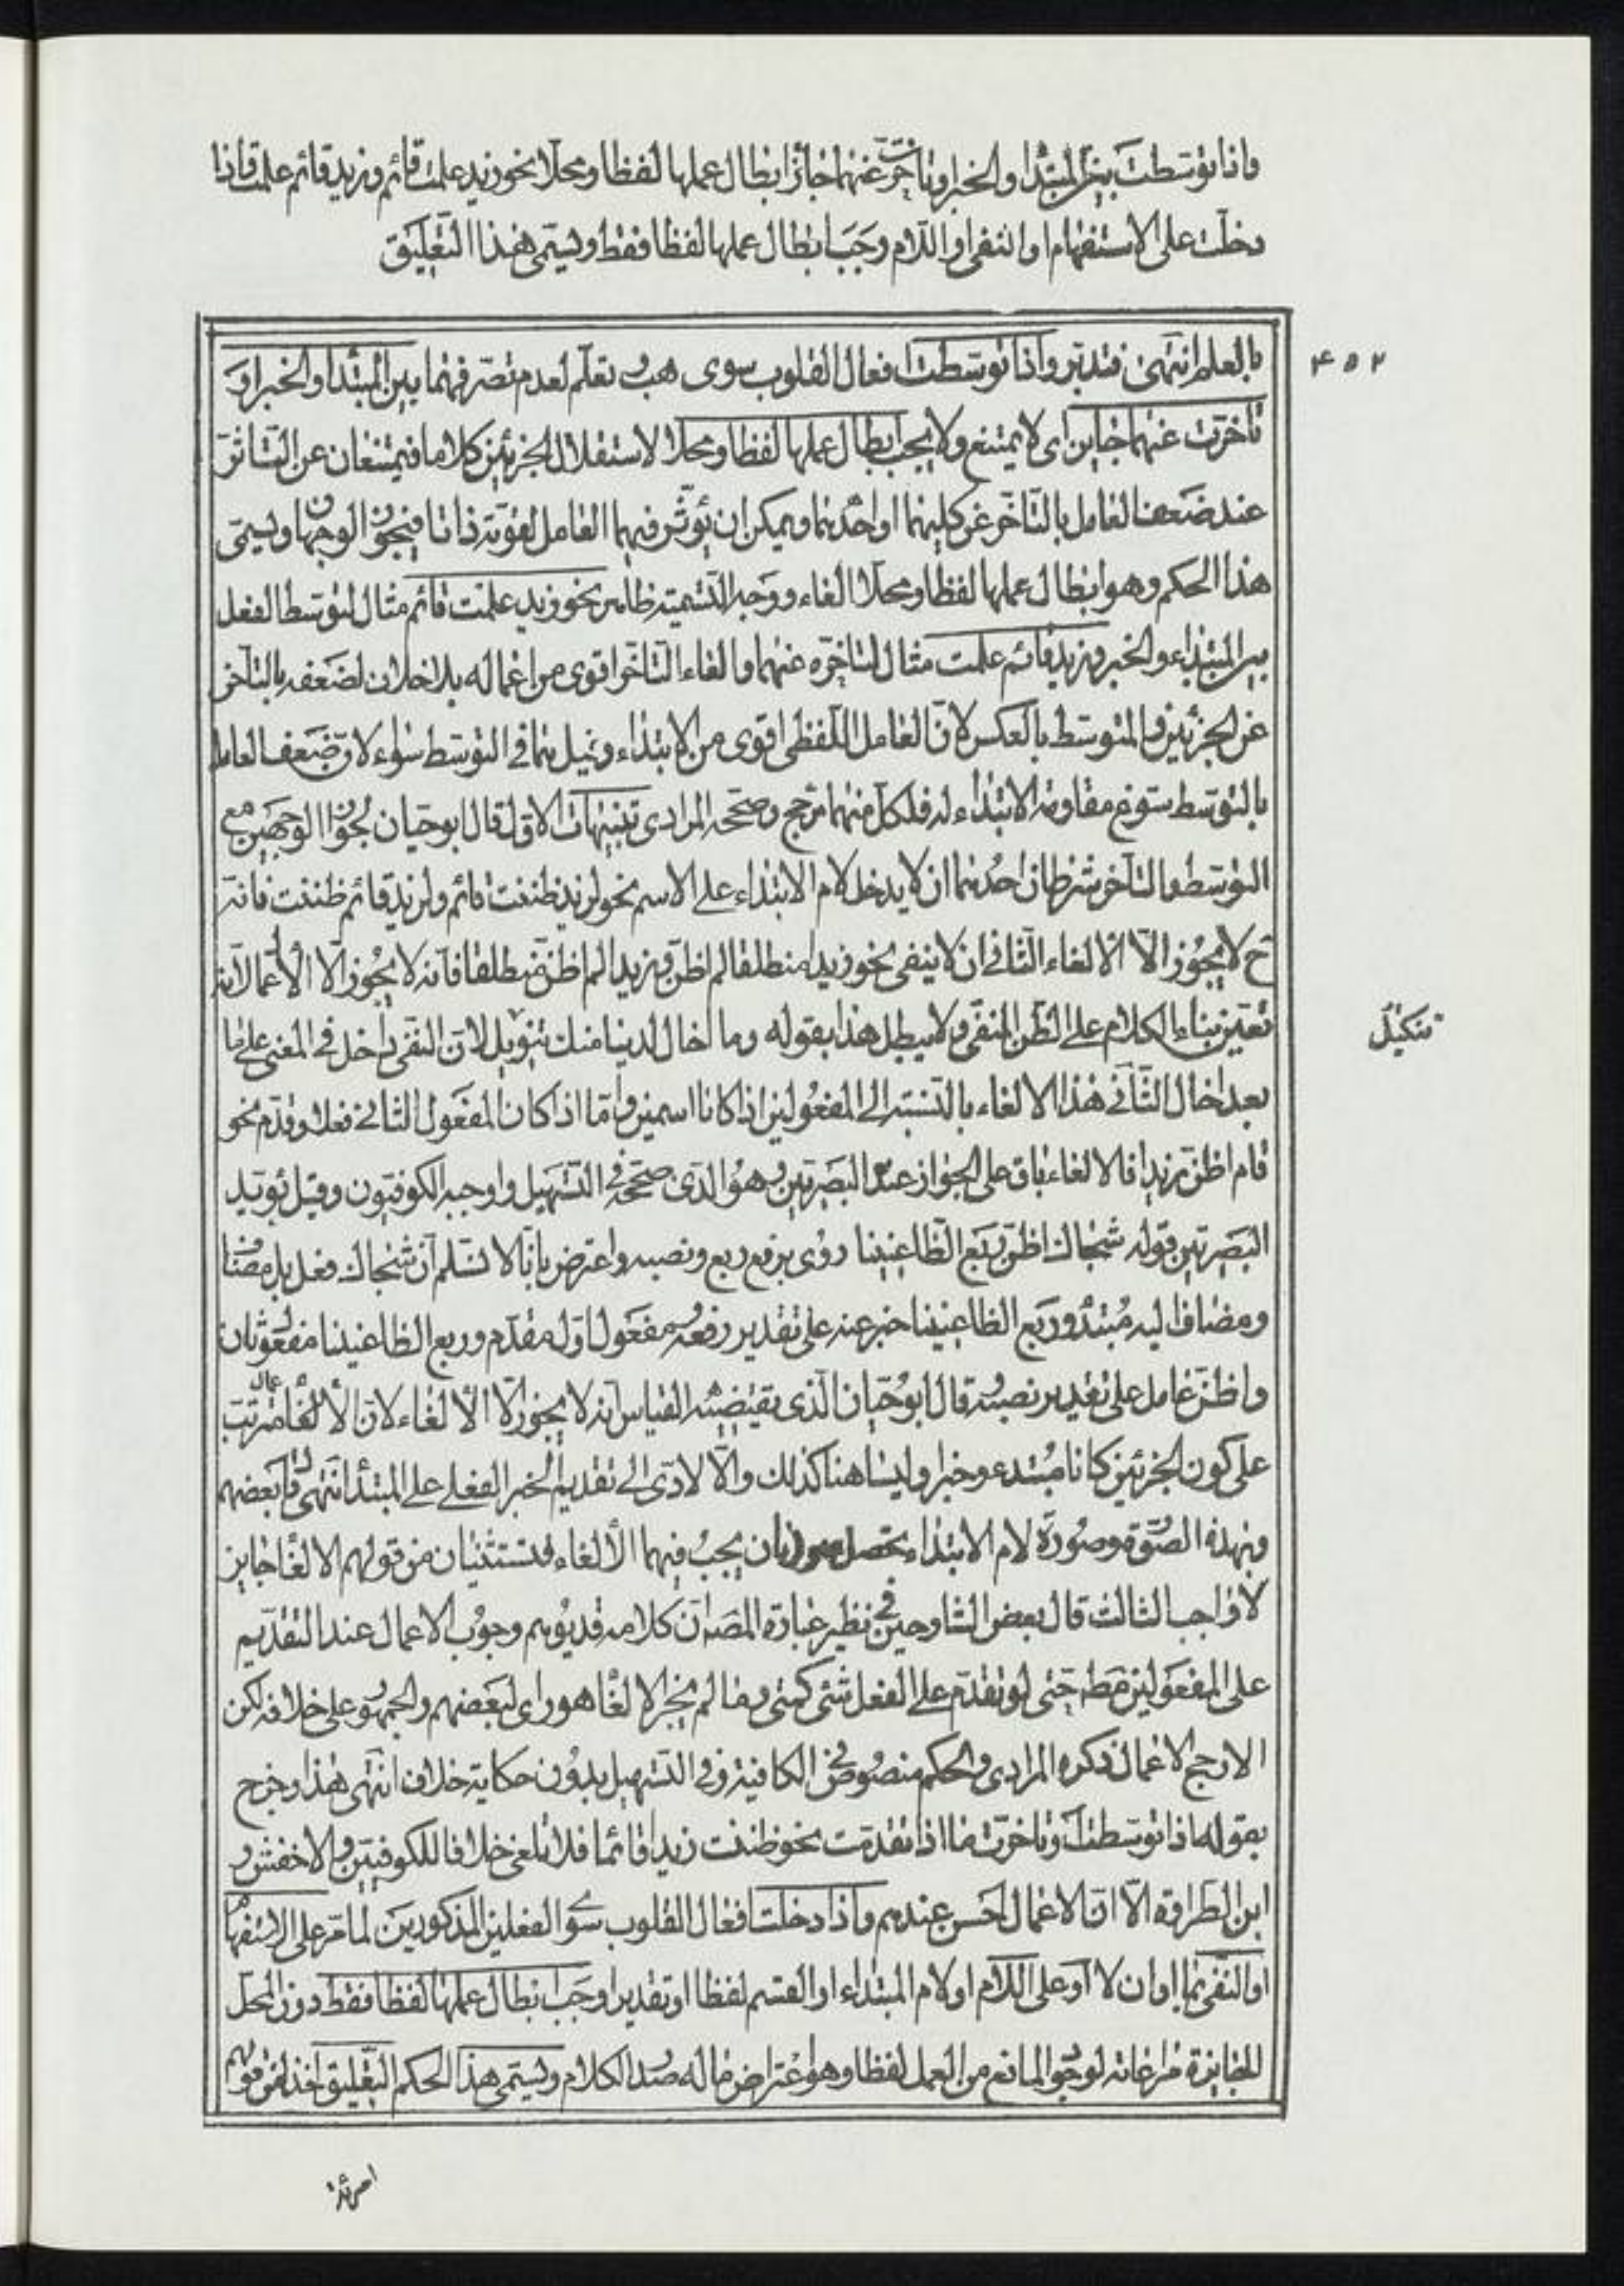 واذا توسطت بين المبتدا والخبر او تاخرت عنهما جائز ابطال عملها لفظا ومحلا نحو زيد علمت قائم وزيد قائم علمت واذا
دخلت على الاستفهام او النفى او اللام وجب ابطال عملها لفظا فقط ويسمى هذا التعليق
۴۵۲
بالعلم انتهى فتدبر واذا توسطت افعال القلوب سوى هب وتعلم لعدم تصرفهما بين المبتدا والخبر او
تاخرت عنهما جايز اى لا يمتنع ولا يجب ابطال عملها لفظا ومحلا لاستقلال الجزئين كلاما فيمتنعان عن التاثر
عند ضعف العامل بالتاخر عن كليهما او احدهما ويمكن ان يؤثر فيهما العامل لقوته ذاتا فيجوز الوجهان ويسمى
هذا الحكم وهو ابطال عملها لفظا ومحلا الغاء ووجه التسمية ظاهر نحو زيد علمت قائم مثال لتوسط الفعل
بين المبتداء والخبر وزيد قائم علمت مثال لتاخره عنهما والغاء التاخر اقوى من اعماله بلا خلاف لضعفه بالتاخر
عن الجزئين والمتوسط بالعكس لان العامل اللفظى اقوى من الابتداء وقيل هما فى التوسط سواء لان ضعف العامل
بالتوسط سوغ مقاومة الابتداء له فلكل منهما مرجح وصححه المرادى تنبيهات الاول قال ابوحيان لجواز الوجهين مع
التوسط والتاخر شرطان احدهما ان لا يدخل لام الابتداء على الاسم نحو لزيد ظننت قائم ولزيد قائم ظننت فانه
ح لا يجوز الا الالغاء الثانى ان لا ينفى نحو زيدا منطلقا لم اظن وزيدا لم اظن منطلقا فانه لا يجوز الا الاعمال لانه
تعين بناء الكلام على الظن المنفى ولا يبطل هذا بقوله وما اخال لدينا منك تنويل لان النفى داخل فى المعنى على ما
تنكيل
بعد اخال الثانى هذا الالغاء بالنسبة الى المفعولين اذا كانا اسمين واما اذا كان المفعول الثانى فعلا وقدم نحو
قام اظن زيد فالالغاء باق على الجواز عند البصريين وهو الذى صححه فى التسهيل واوجبه الكوفيون وقيل يؤيد
البصريين قوله شجاك اظن ربع الظاعنينا روى برفع ربع ونصبه واعترض بانا لا نسلم ان شجاك فعل بل مضاف
ومضاف اليه مبتدا وربع الظاعنينا خبر عنه على تقدير رفعه ومفعول اول مقدم وربع الظاعنينا مفعول ثان
واظن عامل على تقدير نصبه قال ابوحيان الذى يقتضيه القياس انه لا يجوز الا الالغاء لان الاعمال مرتب
على كون الجزئين كانا مبتدء وخبرا وليسا هنا كذلك والا لادى الى تقديم الخبر الفعلى على المبتدا انتهى قال بعضهم
وبهذه الصورة وصورة لام الابتداء يحصل صورتان يجب فيهما الالغاء فتستثنيان من قولهم الالغاء جايز
لا واجب الثالث قال بعض الشارحين فى نظير عبارة المصه ان كلامه قد يوهم وجوب الاعمال عند التقديم
على المفعولين مط حتى لو تقدم على الفعل شئ كمتى وما لم يجز الالغاء هو راى لبعضهم والجمهور على خلافه لكن
الارجح الاعمال ذكره المرادى والحكم منصوص فى الكافية وفى التسهيل بدون حكاية خلاف انتهى هذا وخرج
بقوله اذا توسطت او تاخرت ما اذا تقدمت نحو ظننت زيدا قائما فلا تلغى خلافا للكوفيين والاخفش و
ابن الطراوة الا ان الاعمال احسن عندهم واذا دخلت افعال القلوب سوى الفعلين المذكورين لما مر على الاستفهام
او النفى بما او ان لا او على اللام او لام المبتداء او القسم لفظا او تقديرا وجب ابطال عملها لفظا فقط دون المحل
لوجود المانع من العمل لفظا وهو اعتراض ما له صدر الكلام ويسمى هذا الحكم التعليق اخذا من قولهم
امرئة